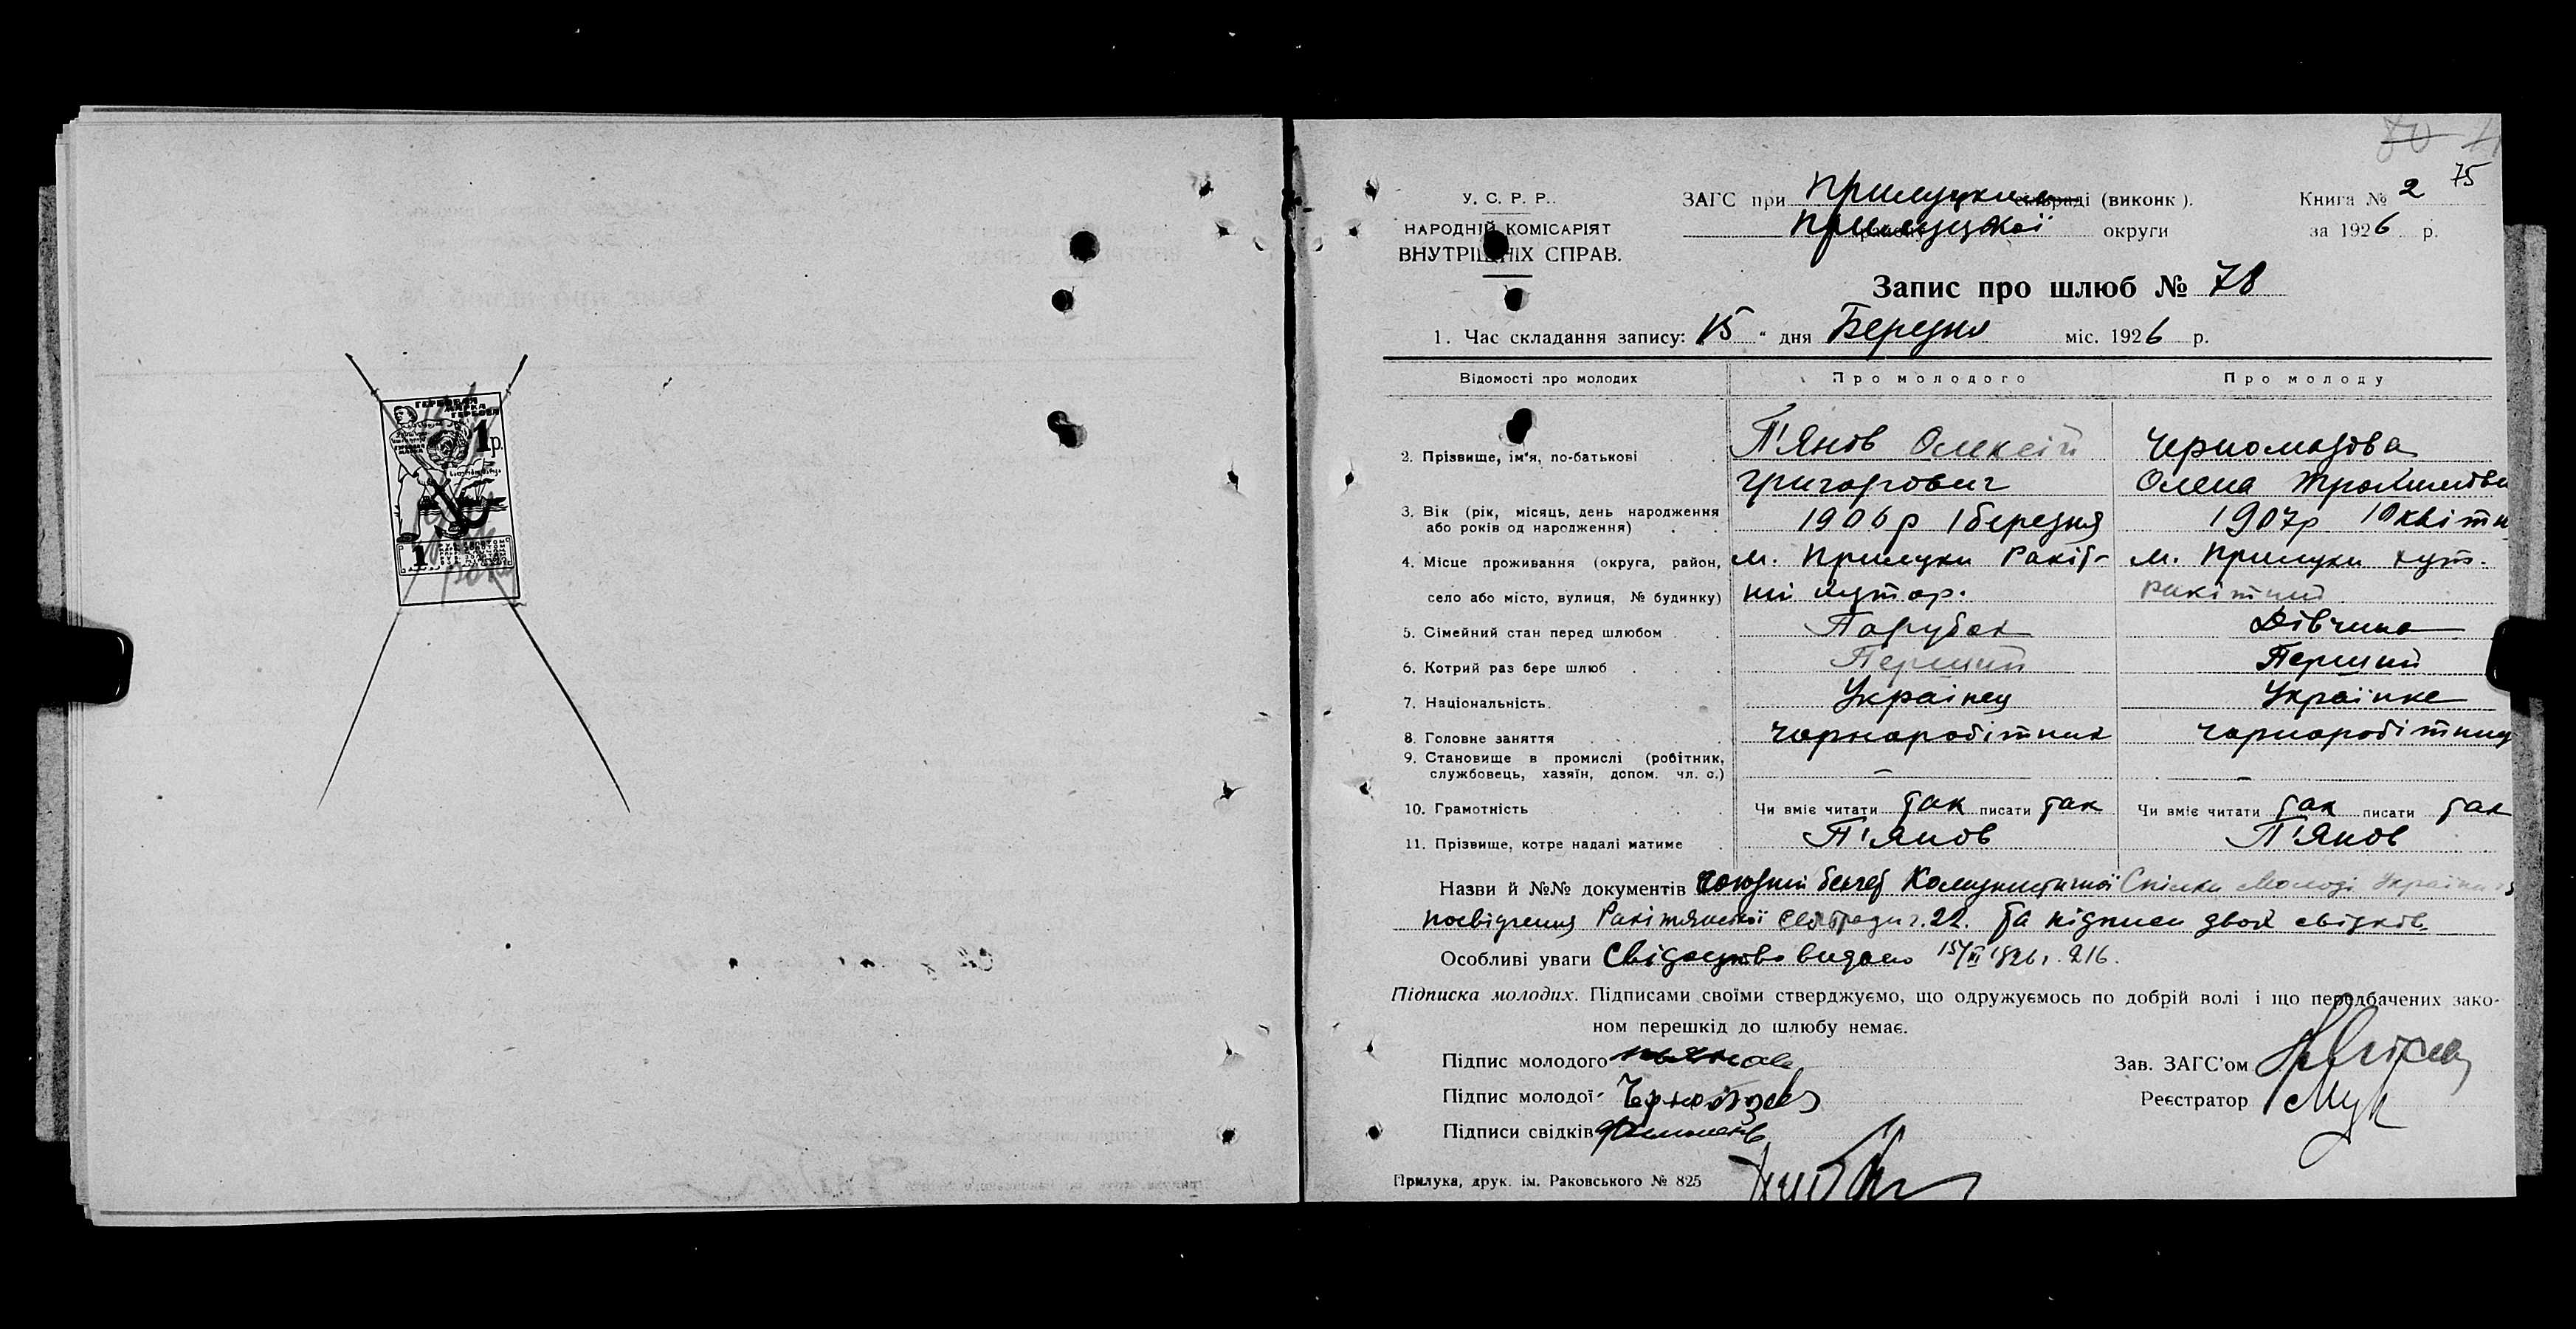 ГЕРБОВАЯ
МАРКА
1 р.
1
75
У. С. Р. Р.
НАРОДНІЙ КОМІСАРІЯТ
ВНУТРІШНІХ СПРАВ.
ЗАГС при Прилуцким сельраді (виконк).
Прилуцької округи
Книга № 2
за 1926 р.
Запис про шлюб № 78
1. Час складання запису: 15 " дня Березня міс. 1926 р.
Відомості про молодих Про молодого Про молоду
2. Прізвище, ім'я, по-батькові П'Янов Олексій Григорович Черномазова Олена
3. Вік (рік, місяць, день народження або років од народження) 1906 р 1 березня 1907 р 10 квітн
4. Місце проживання (округа, район, м. Прилуки Ракіт- м. Прилуки хут.
село або місто, вулиця, № будинку) ний хутор. Ракітний
5. Сімейний стан перед шлюбом Парубок Дівчина
6. Котрий раз бере шлюб Перший Перший
7. Національність Українец Українка
8. Головне заняття чорноробітник чорноробітниц
9. Становище в промислі (робітник, службовець, хазяїн, допом. чл. с.) – –
10. Грамотність Чи вміє читати так писати так Чи вміє читати так писати так
11. Прізвище, котре надалі матиме П'янов П'Янов
Назви й №№ документів Союзний білет Комуністичної Спілки Молоді України
посвідчення Ракітянської сельради 22. та підписи двох свідків.
Особливі уваги Свідоцтво видано 15/III 1926 г. 216.
Підписка молодих. Підписами своїми стверджуємо, що одружуємось по добрій волі і що передбачених зако-
ном перешкід до шлюбу немає.
Підпис молодого
Зав. ЗАГС'ом
Підпис молодої
Реєстратор
Підписи свідків
Прилука, друк. ім. Раковського № 825